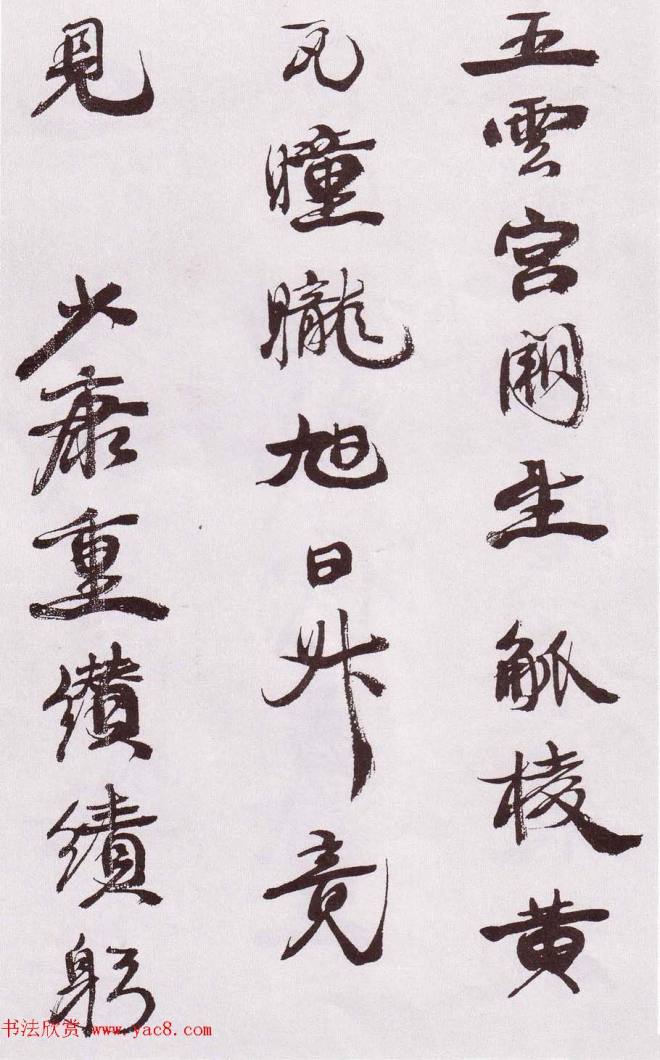 五雲宮闕觚棱黄
瓦曈曨旭日升竟
見少康重纘績躬
书法欣赏 www.yac8.com